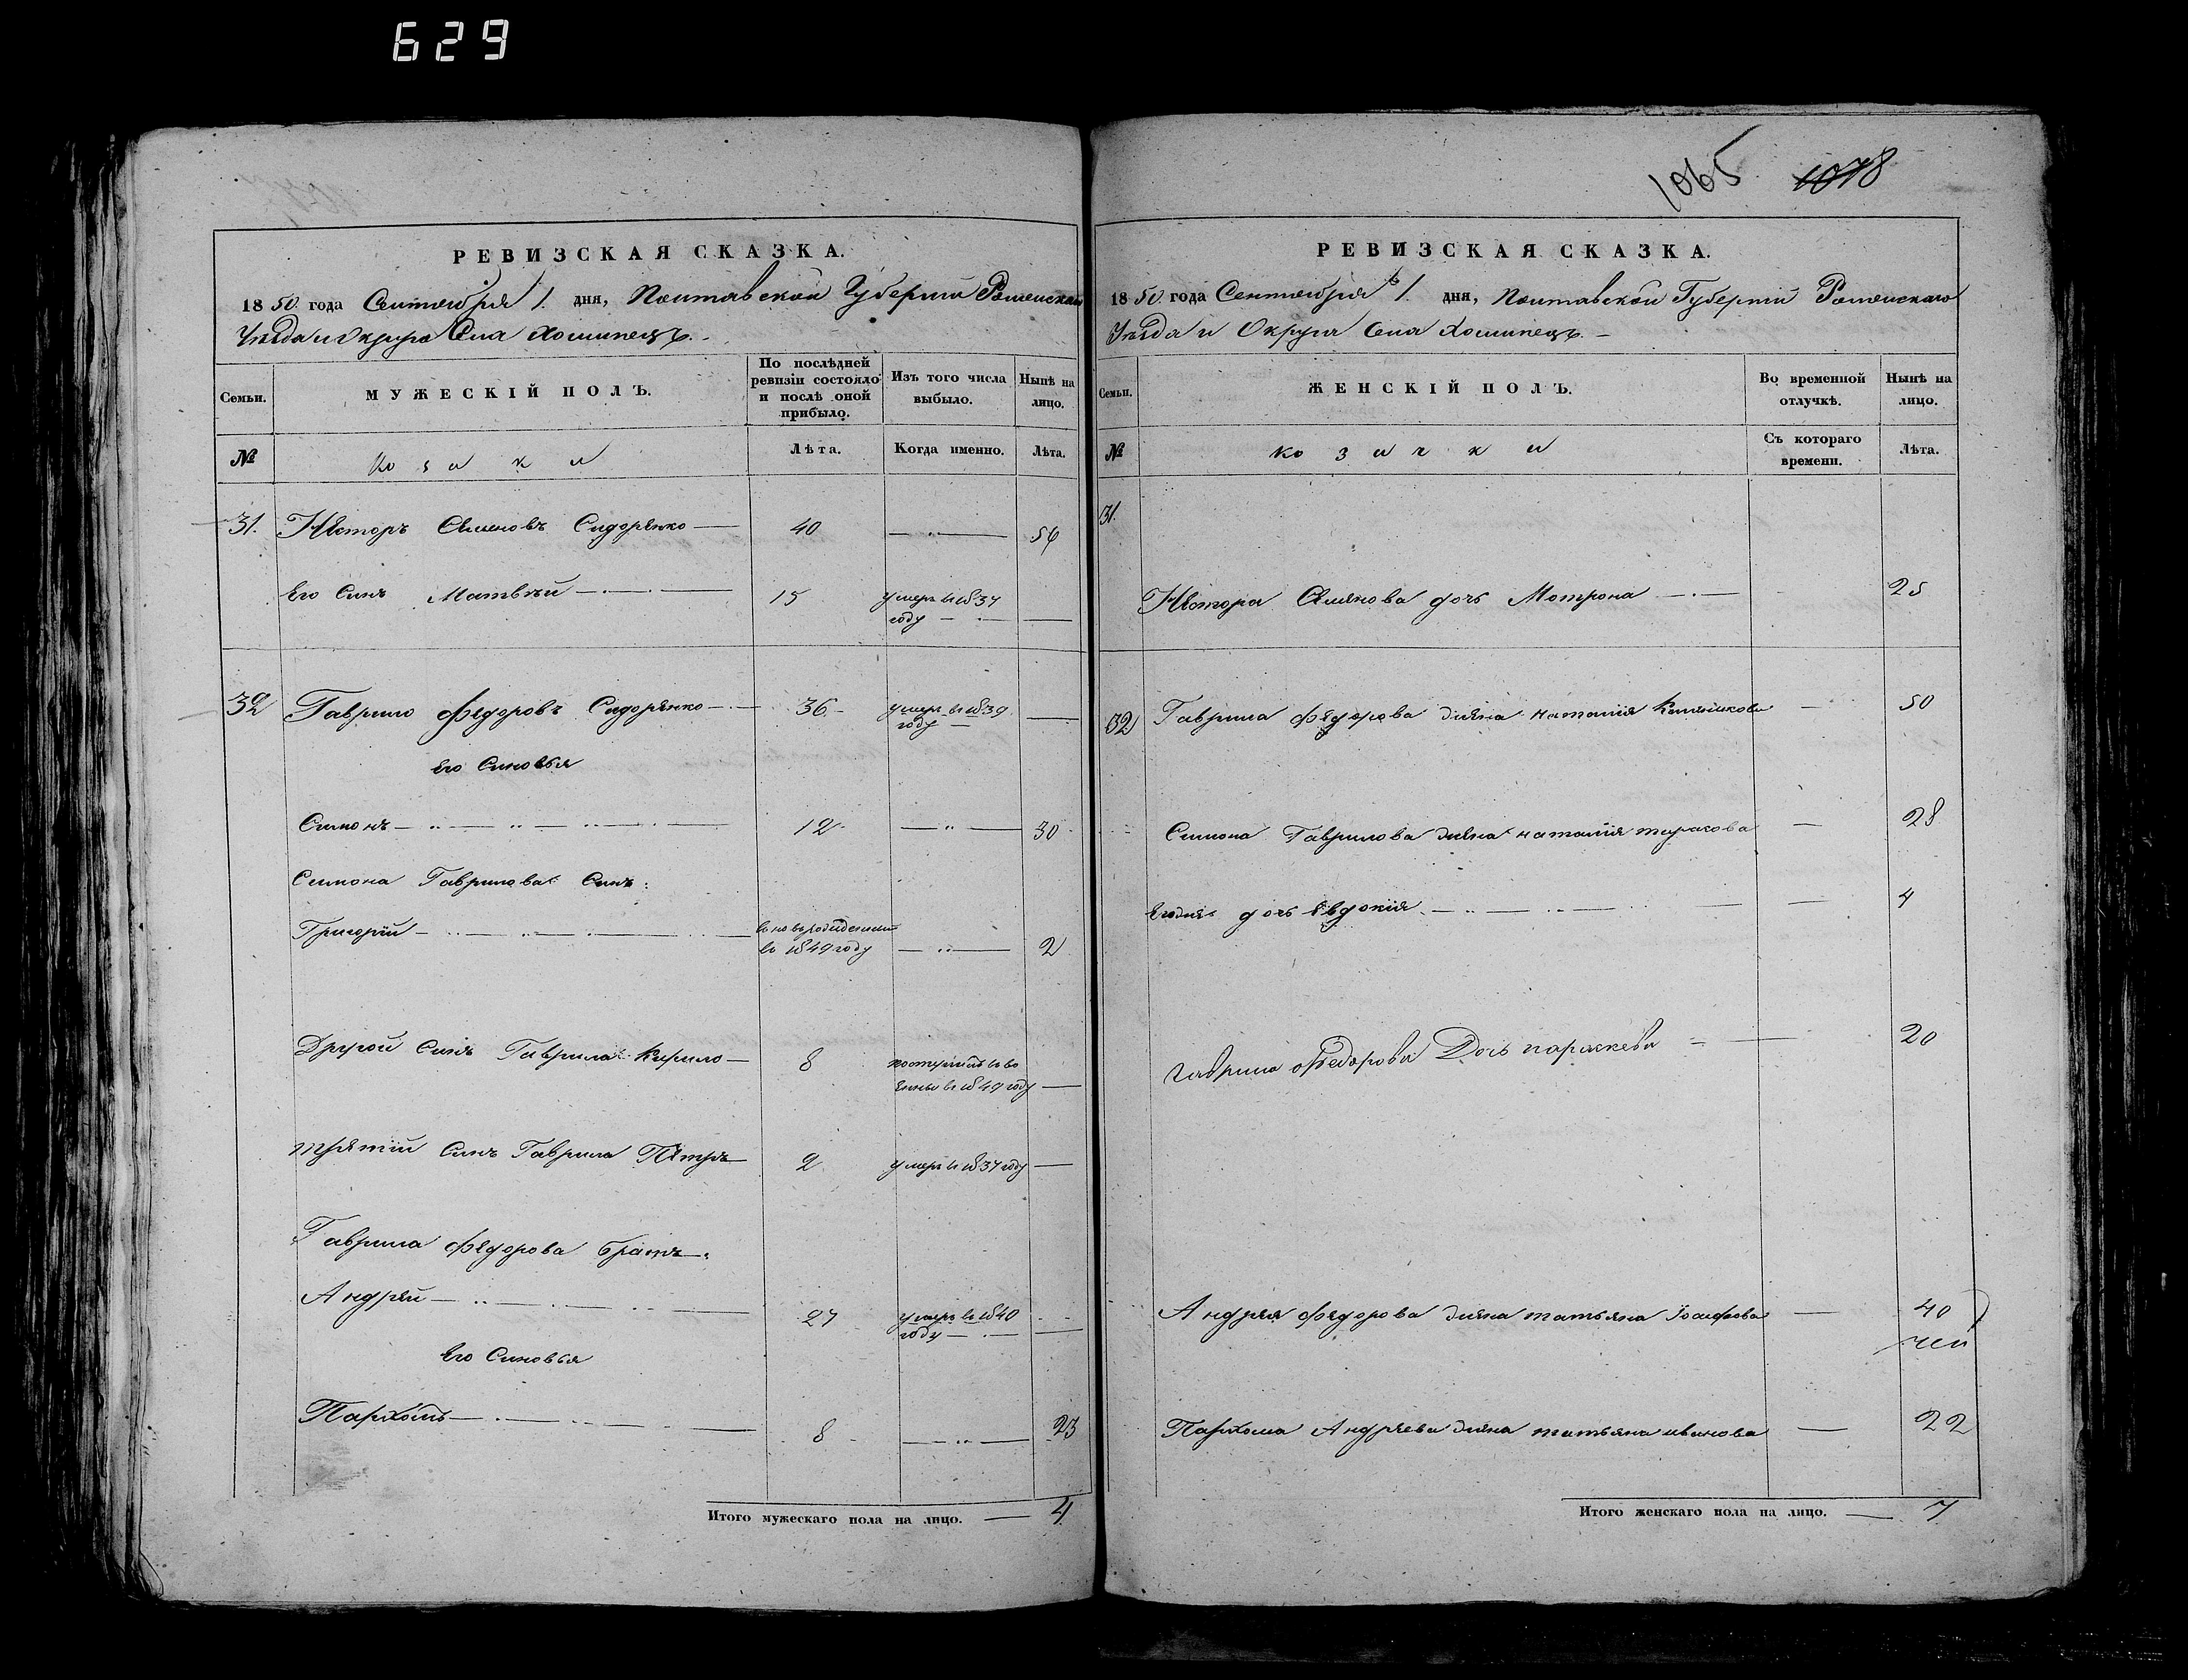 629
1065 1078
РЕВИЗСКАЯ СКАЗКА.
1850 года Сентября 1. дня, Полтавской Губернии Роменскаго
Уѣзда и Округа Села Хоминецъ.
Семьи.
МУЖЕСКІЙ ПОЛЪ.
По послѣдней ревизіи состояло и послѣ оной прибыло.
Изъ того числа выбыло.
Нынѣ на лицо.
№
Козаки
Лѣта.
Когда именно.
Лѣта.
31. Нѣсторъ Семеновъ Сидоренко 40 54
Его Синъ Матвѣй 15 умеръ въ 1837
году
32 Гаврило Федоровъ Сидоренко 36 умеръ въ 1839
году
Его Синовья
Симонъ 12 30
Симона Гаврилова Синъ:
Григорій вновьрожденный
въ 1849 году 2
Другой Синъ Гаврила Кирило 8 поступилъ въ во
енны въ 1849 году
третій Синъ Гаврила Петръ 2 умеръ въ 1837 году
Гаврила Федорова братъ:
Андрей 27 умеръ въ 1840
году
Его Синовья
Пархомъ 8 23
Итого мужескаго пола на лицо. 4
РЕВИЗСКАЯ СКАЗКА.
1850 года Сентября 1. дня, Полтавской Губерніи Роменскаго
Уѣзда и Округа Села Хоминецъ.
Семьи.
ЖЕНСКІЙ ПОЛЪ.
Во временной отлучкѣ.
Нынѣ на лицо.
№
козачки
Съ котораго времени.
Лѣта.
31.
Нестора Семенова дочь Мотрона 25
32 Гаврила Федорова жена наталія 50
Симона Гаврилова жена наталія тарасова 28
Егоже дочь Евдокія 4
гаврила Федорова Дочь параскева 20
Андрея Федорова жена татьяна Іосифова 40
Пархома Андреева жена татьяна иванова 22
Итого женскаго пола на лицо. 7